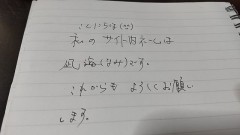 こんにちは(^^)
私のサイト内ネームは
凪海(なみ)です。
これからも よろしくお願い
します。